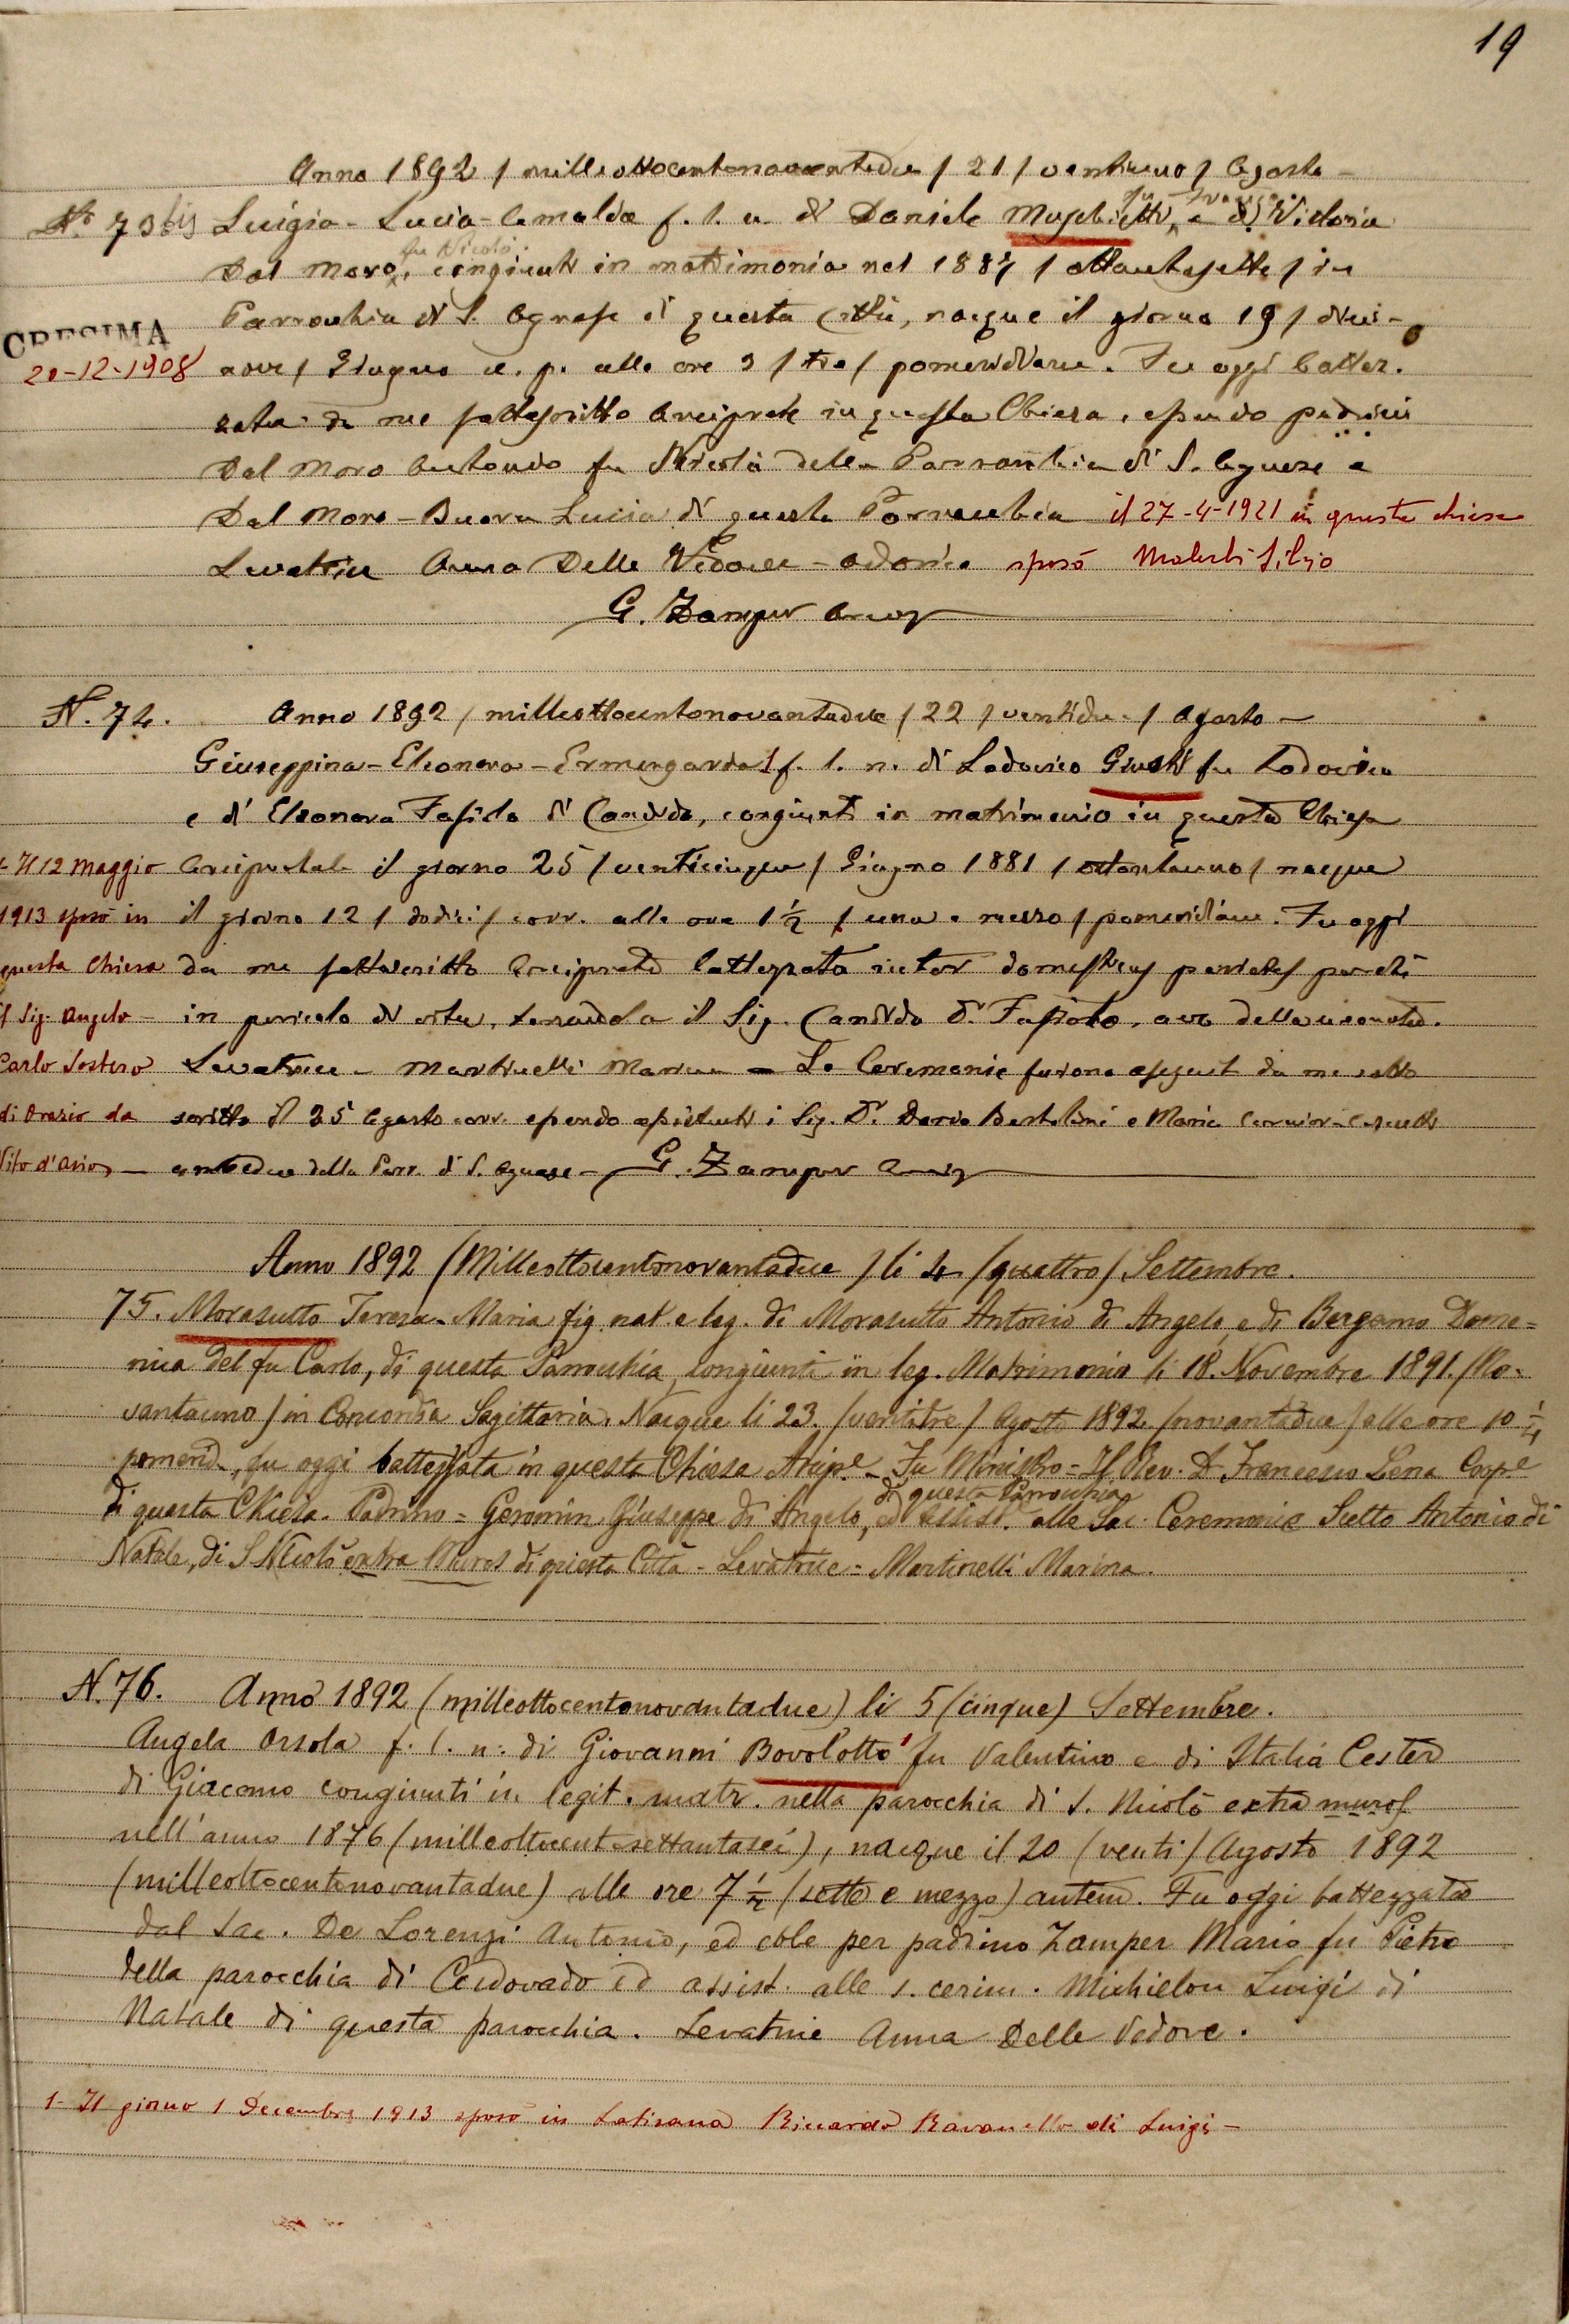 19
Anno 1892 / milleottocentonovantadue / 21 / ventiuno / Agosto -
N. 73 bis Luigia - Lucia - Amalia f. l. n. di Daniele e di Vittoria
Dal Moro, fu Nicolò congiunti in matrimonio nel 1887 / ottantasette / in
Parrochia di S. Agnese di questa Città, nacque il giorno 19 / dici-
CRESIMA
20-12-1908
nove / Giugno u. p. alle ore 3 / tre / pomeridiane. Fu oggi battez.
zata da me sottoscritto Arciprete in questa Chiesa, essendo padrini
Dal Moro Antonio fu Nicolò della Parrochia di S. Agnese e
Dal Moro - Buora Lucia di questa Parrochia il 27-4-1921 in questa chiesa
Levatrice Anna Delle Vedove - Odorico sposò Silvio
G. Zamper Arcip
N. 74. Anno 1892 / milleottocentonovantadue / 22 / ventidue / Agosto -
Giuseppina - Eleonora - Ermengarda 1 f. l. n. di Lodovico Giusti fu Lodovico
e di Eleonora Fasiolo di Candido, congiunti in matrimonio in questa Chiesa
Arcipretale il giorno 25 / venticinque / Giugno 1881 / ottantauno / nacque
il giorno 12 / dodici / corr. alle ore 1 ½ / una e mezzo / pomeridiane. Fu oggi
da me sottoscritto Arciprete battezzata inter domesticos parietes perché
in pericolo di vita, tenendola il Sig. Candido Dr. Fasiolo, avo della neonata.
Levatrice - Martinelli Marina - Le Ceremonie furono eseguite da me sotto
scritto il 25 Agosto corr. essendo assistenti i Sig. Dr. Dario Bertolini e Maria
ambedue della Parr. di S. Agnese - G. Zamper Arcip
1- Il 12 Maggio
1913 sposò in
questa Chiesa
il Sig. Angelo -
Carlo Sostero
di Orazio da
Vito d'Asio -
Anno 1892 (Milleottocentonovantadue) li 4 (quattro) Settembre.
75. Morasutto Teresa - Maria fig. nat. e leg. di Morasutto Antonio di Angelo, e di Bergamo Dome=
nica del fu Carlo, di questa Parrochia, congiunti in leg. Matrimonio li 18. Novembre 1891. (No-
vantauno) in Concordia Sagittaria. Nacque li 23. (ventitre) Agosto 1892 (novantadue) alle ore 10 ¼
pomerid., fu oggi battezzata in questa Chiesa Arcip.e - Fu Ministro = Il Rev. D. Francesco Lena Coop.e
di questa Chiesa. Padrino = Geromin Giuseppe di Angelo, di questa Parrochia ed assist. alle Sac. Ceremonie Scetto Antonio di
Natale, di S. Nicolò extra Muros di questa Città - Levatrice = Martinelli Marina.
N. 76. Anno 1892 (milleottocentonovantadue) li 5 (cinque) Settembre.
Angela Orsola f. l. n. di Giovanni Bovolotto 1 fu Valentino e di Italia Cester
di Giacomo congiunti in legit. matr. nella parocchia di S. Nicolò extra muros
nell'anno 1876 (milleottocentosettantasei), nacque il 20 (venti) Agosto 1892
(milleottocentonovantadue) alle ore 7 ½ (sette e mezzo) antem. Fu oggi battezzata
dal Sac. De Lorenzi Antonio, ed ebbe per padrino Zamper Mario fu Pietro
della parocchia di Cordovado ed assist. alle s. cerim. Michielon Luigi di
Natale di questa parocchia. Levatrice Anna Delle Vedove.
1- Il giorno 1 Decembre 1913 sposò in Latisana Riccardo Ravanello di Luigi -